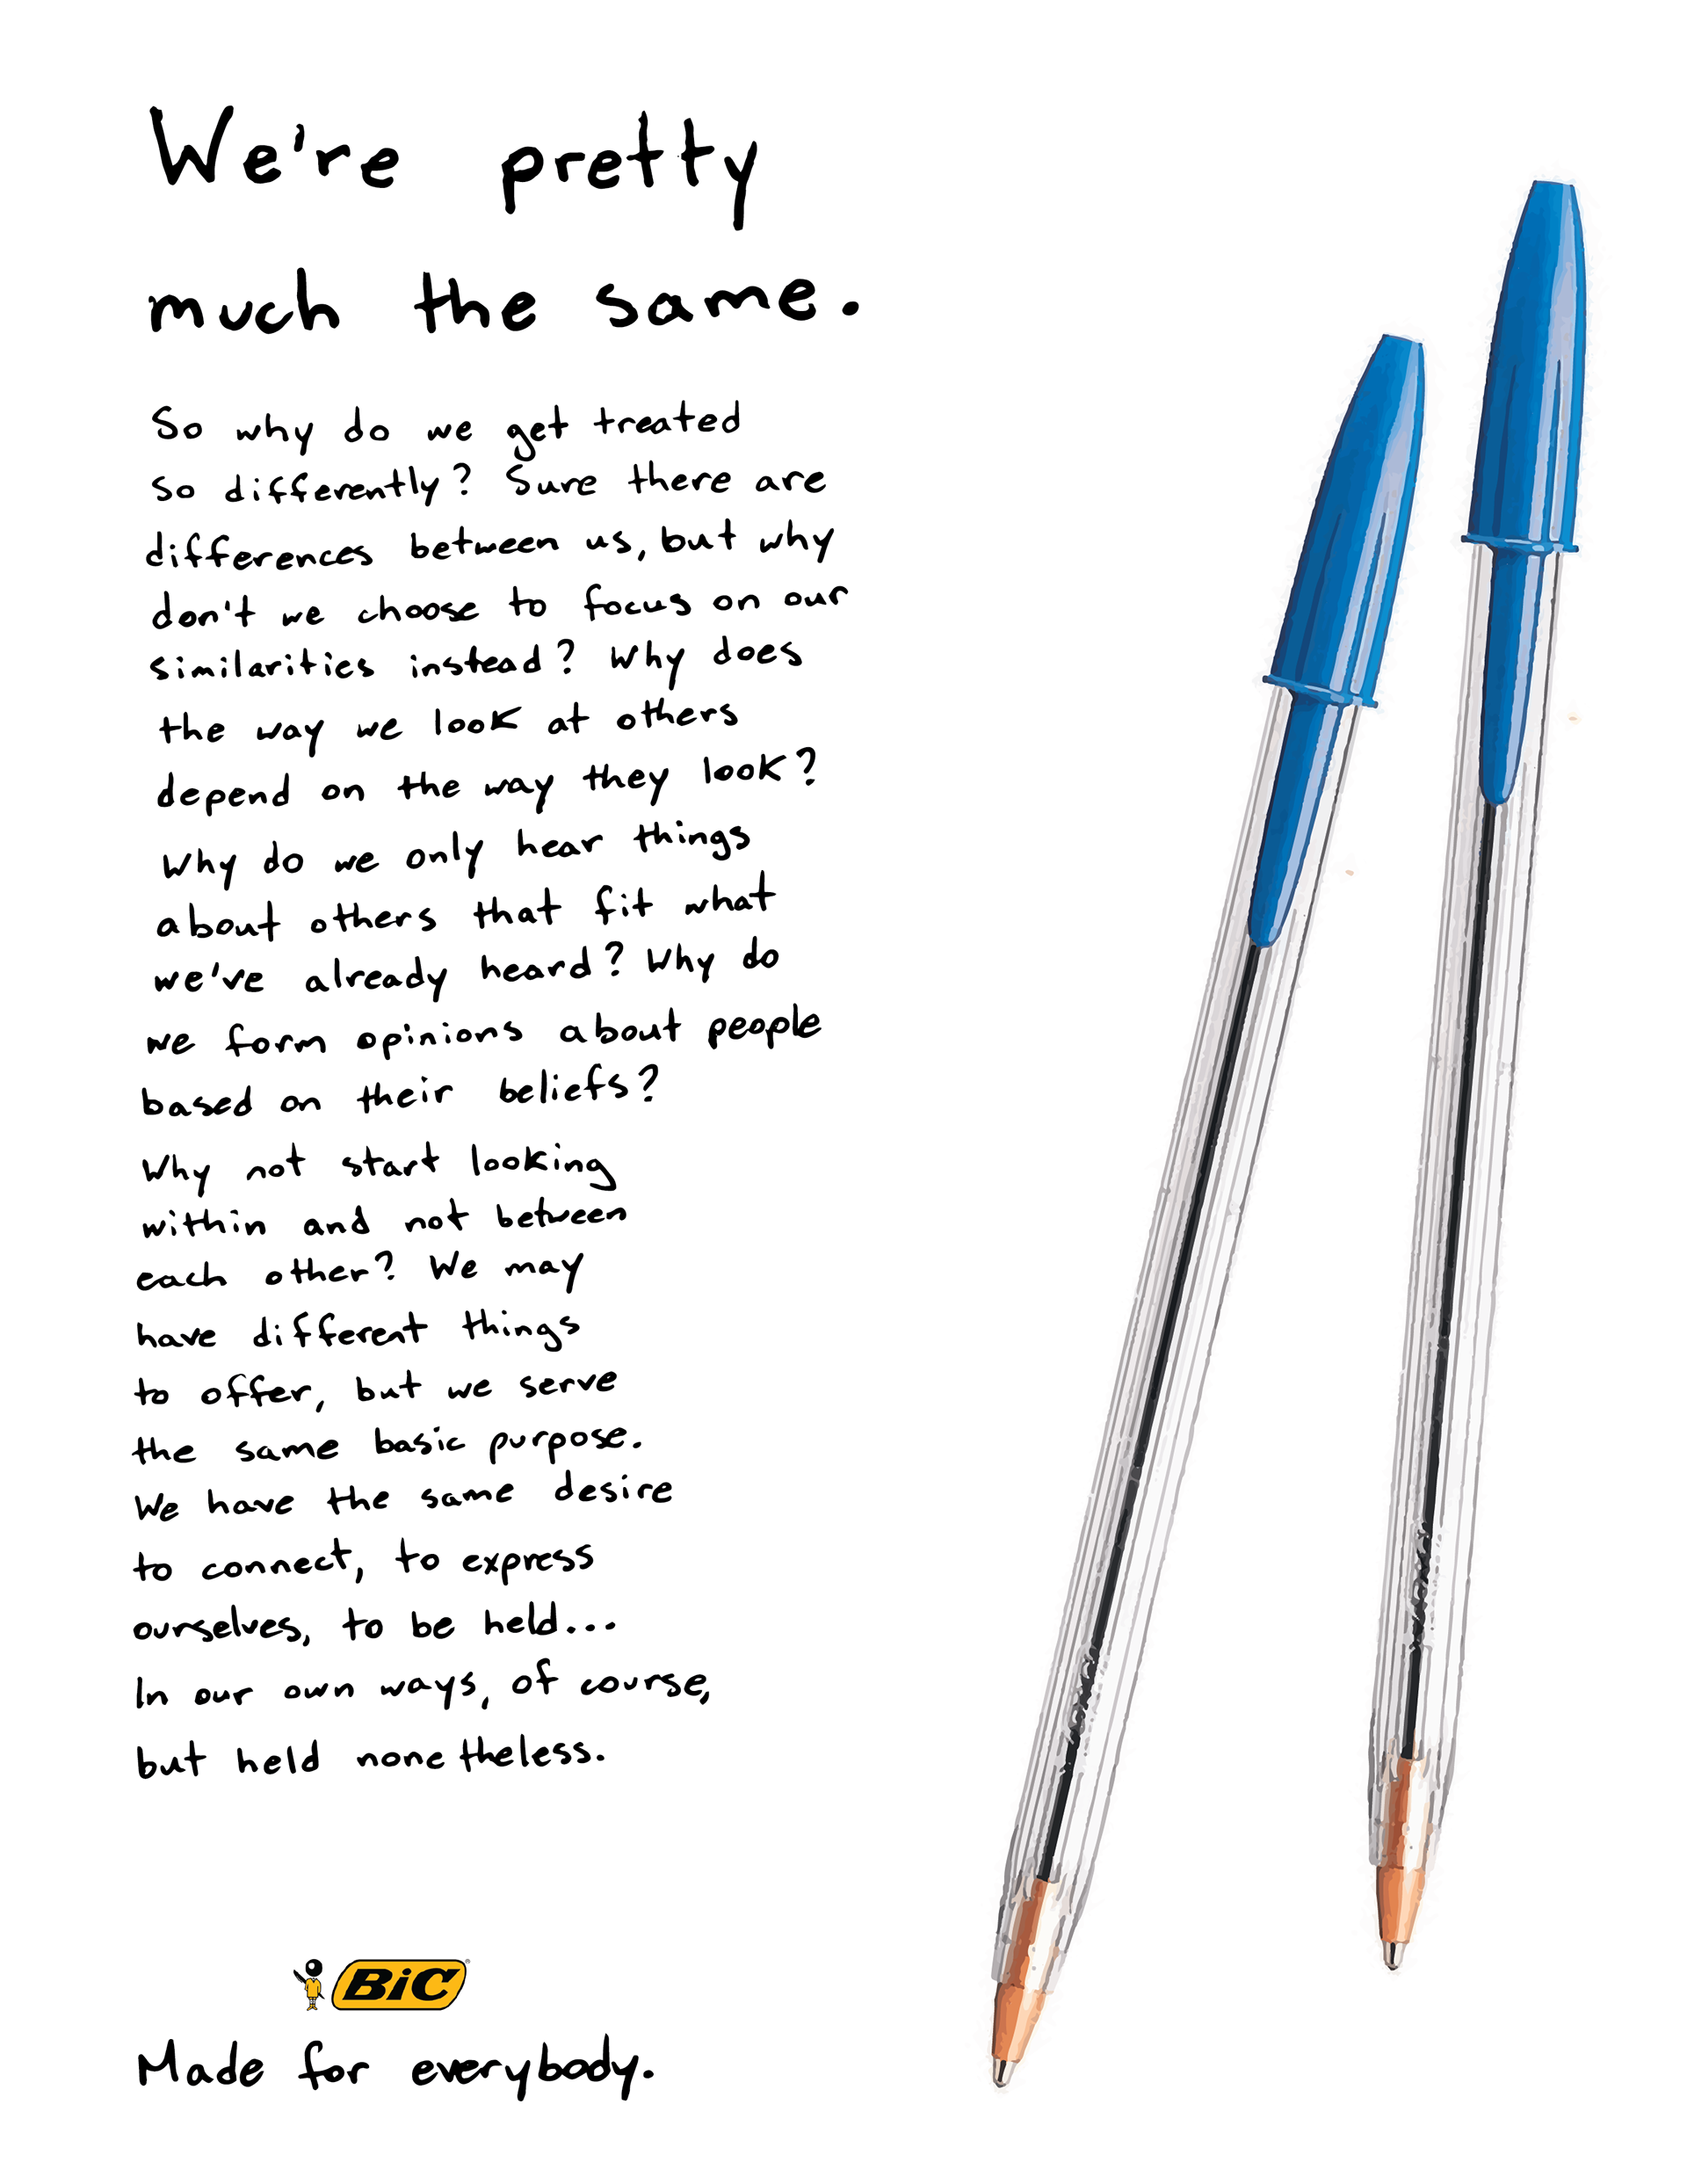 We're pretty
much the same.
So why do we get treated
so differently? Sure there are
differences between us, but why
don't we choose to focus on our
similarities instead? Why does
the way we look at others
depend on the way they look?
Why do we only hear things
about others that fit what
we've already heard? Why do
we form opinions about people
based on their beliefs?
Why not start looking
within and not between
each other? We may
have different things
to offer, but we serve
the same basic purpose.
We have the same desire
to connect, to express
ourselves, to be held...
In our own ways, of course,
but held nonetheless.
BiC®
Made for everybody.